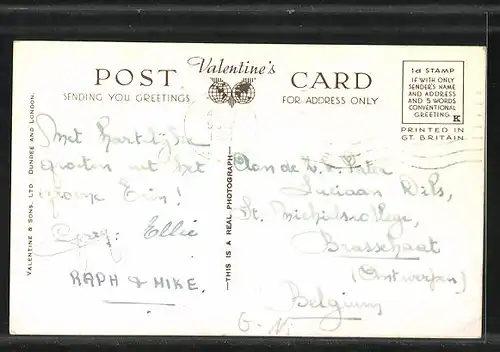 POST Valentine's CARD
SENDING YOU GREETINGS FOR ADDRESS ONLY
1d STAMP
IF WITH ONLY
SENDER'S NAME
AND ADDRESS
AND 5 WORDS
CONVENTIONAL
GREETING K
PRINTED IN
GT. BRITAIN
VALENTINE & SONS, LTD. DUNDEE AND LONDON.
THIS IS A REAL PHOTOGRAPH
Met hartelijke
groeten uit het
groene Erin!
Ellie
RAPH & MIKE.
Aan de Z. E. Pater
Luciaan Dils,
St. Michielscollege,
Brasschaat
(Antwerpen)
Belgium